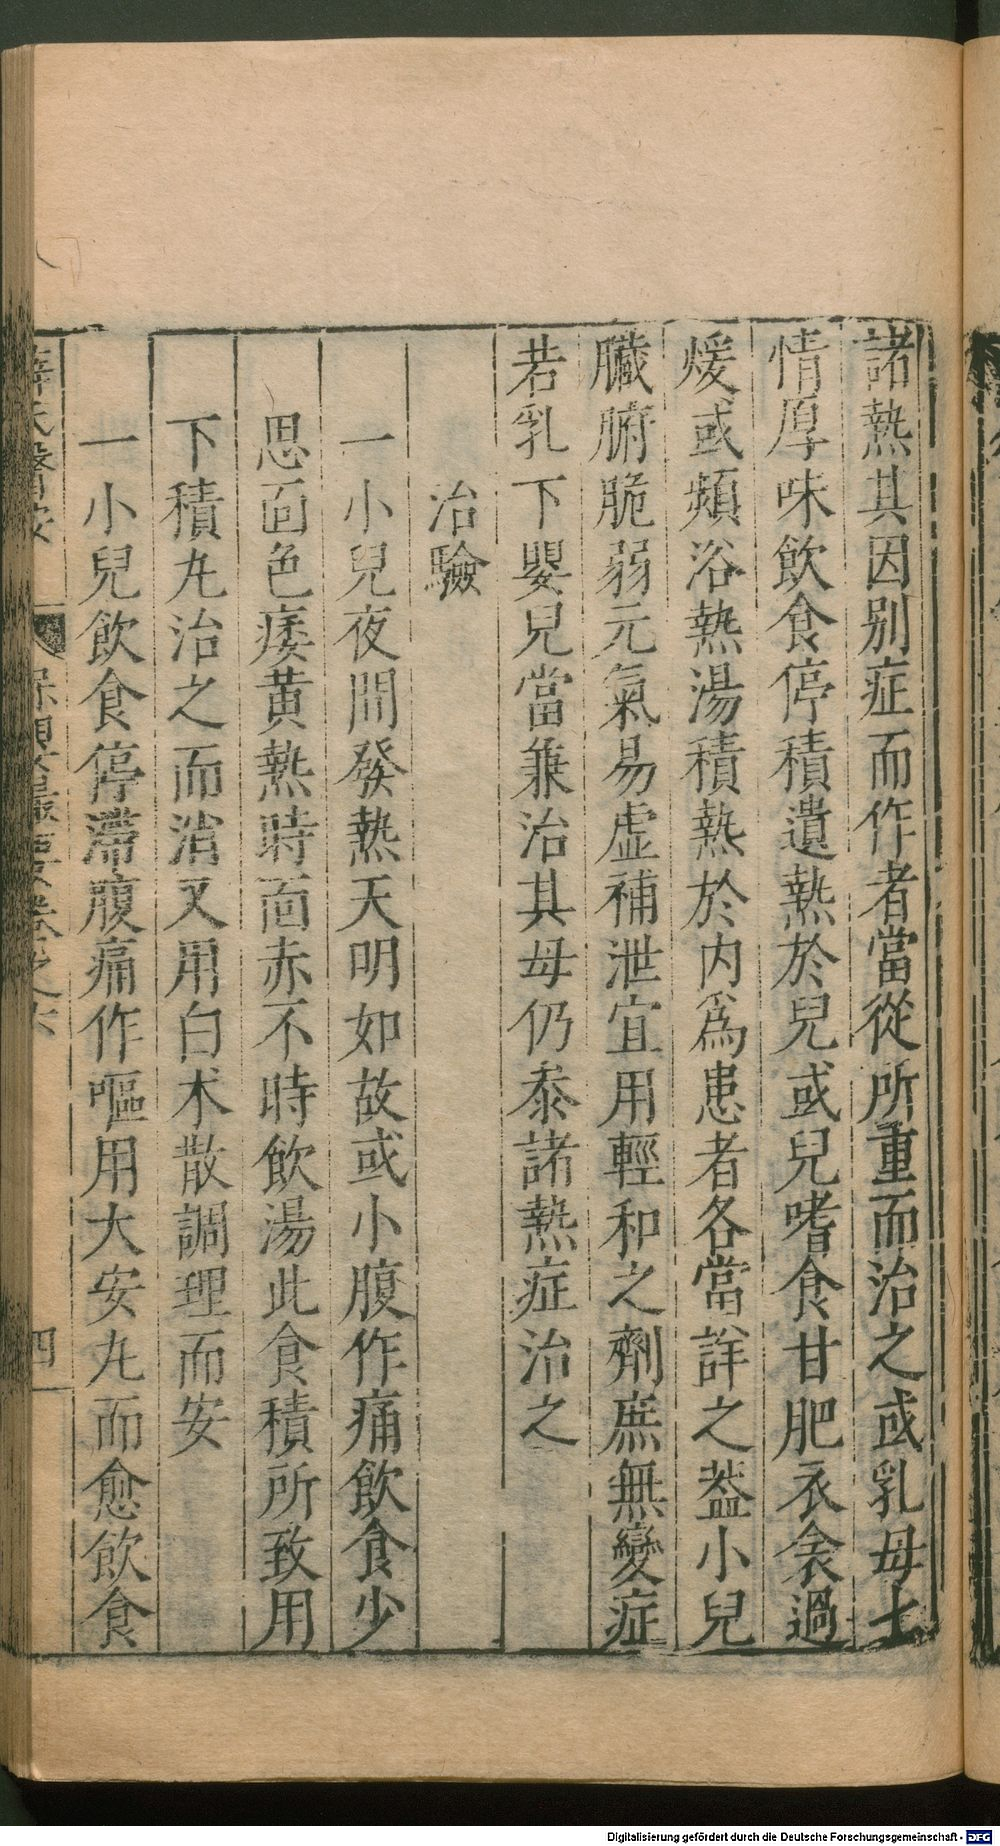 諸熱其因别症而作者當從所重而治之或乳母七
情厚味飲食停積遺熱於兒或兒嗜食甘肥衣衾過
煖或頻浴熱湯積熱於内爲患者各當詳之葢小兒
臟腑脆弱元氣易虚補泄宜用輕和之劑庶無變症
若乳下嬰兒當兼治其母仍叅諸熱症治之
治驗
一小兒夜間發熱天明如故或小腹作痛飲食少
思面色痿黄熱時面赤不時飲湯此食積所致用
下積丸治之而消又用白术散調理而安
一小兒飲食停滯腹痛作嘔用大安丸而愈飲食
薛氏醫按 保嬰撮要卷之六 四
Digitalisierung gefördert durch die Deutsche Forschungsgemeinschaft - DFG